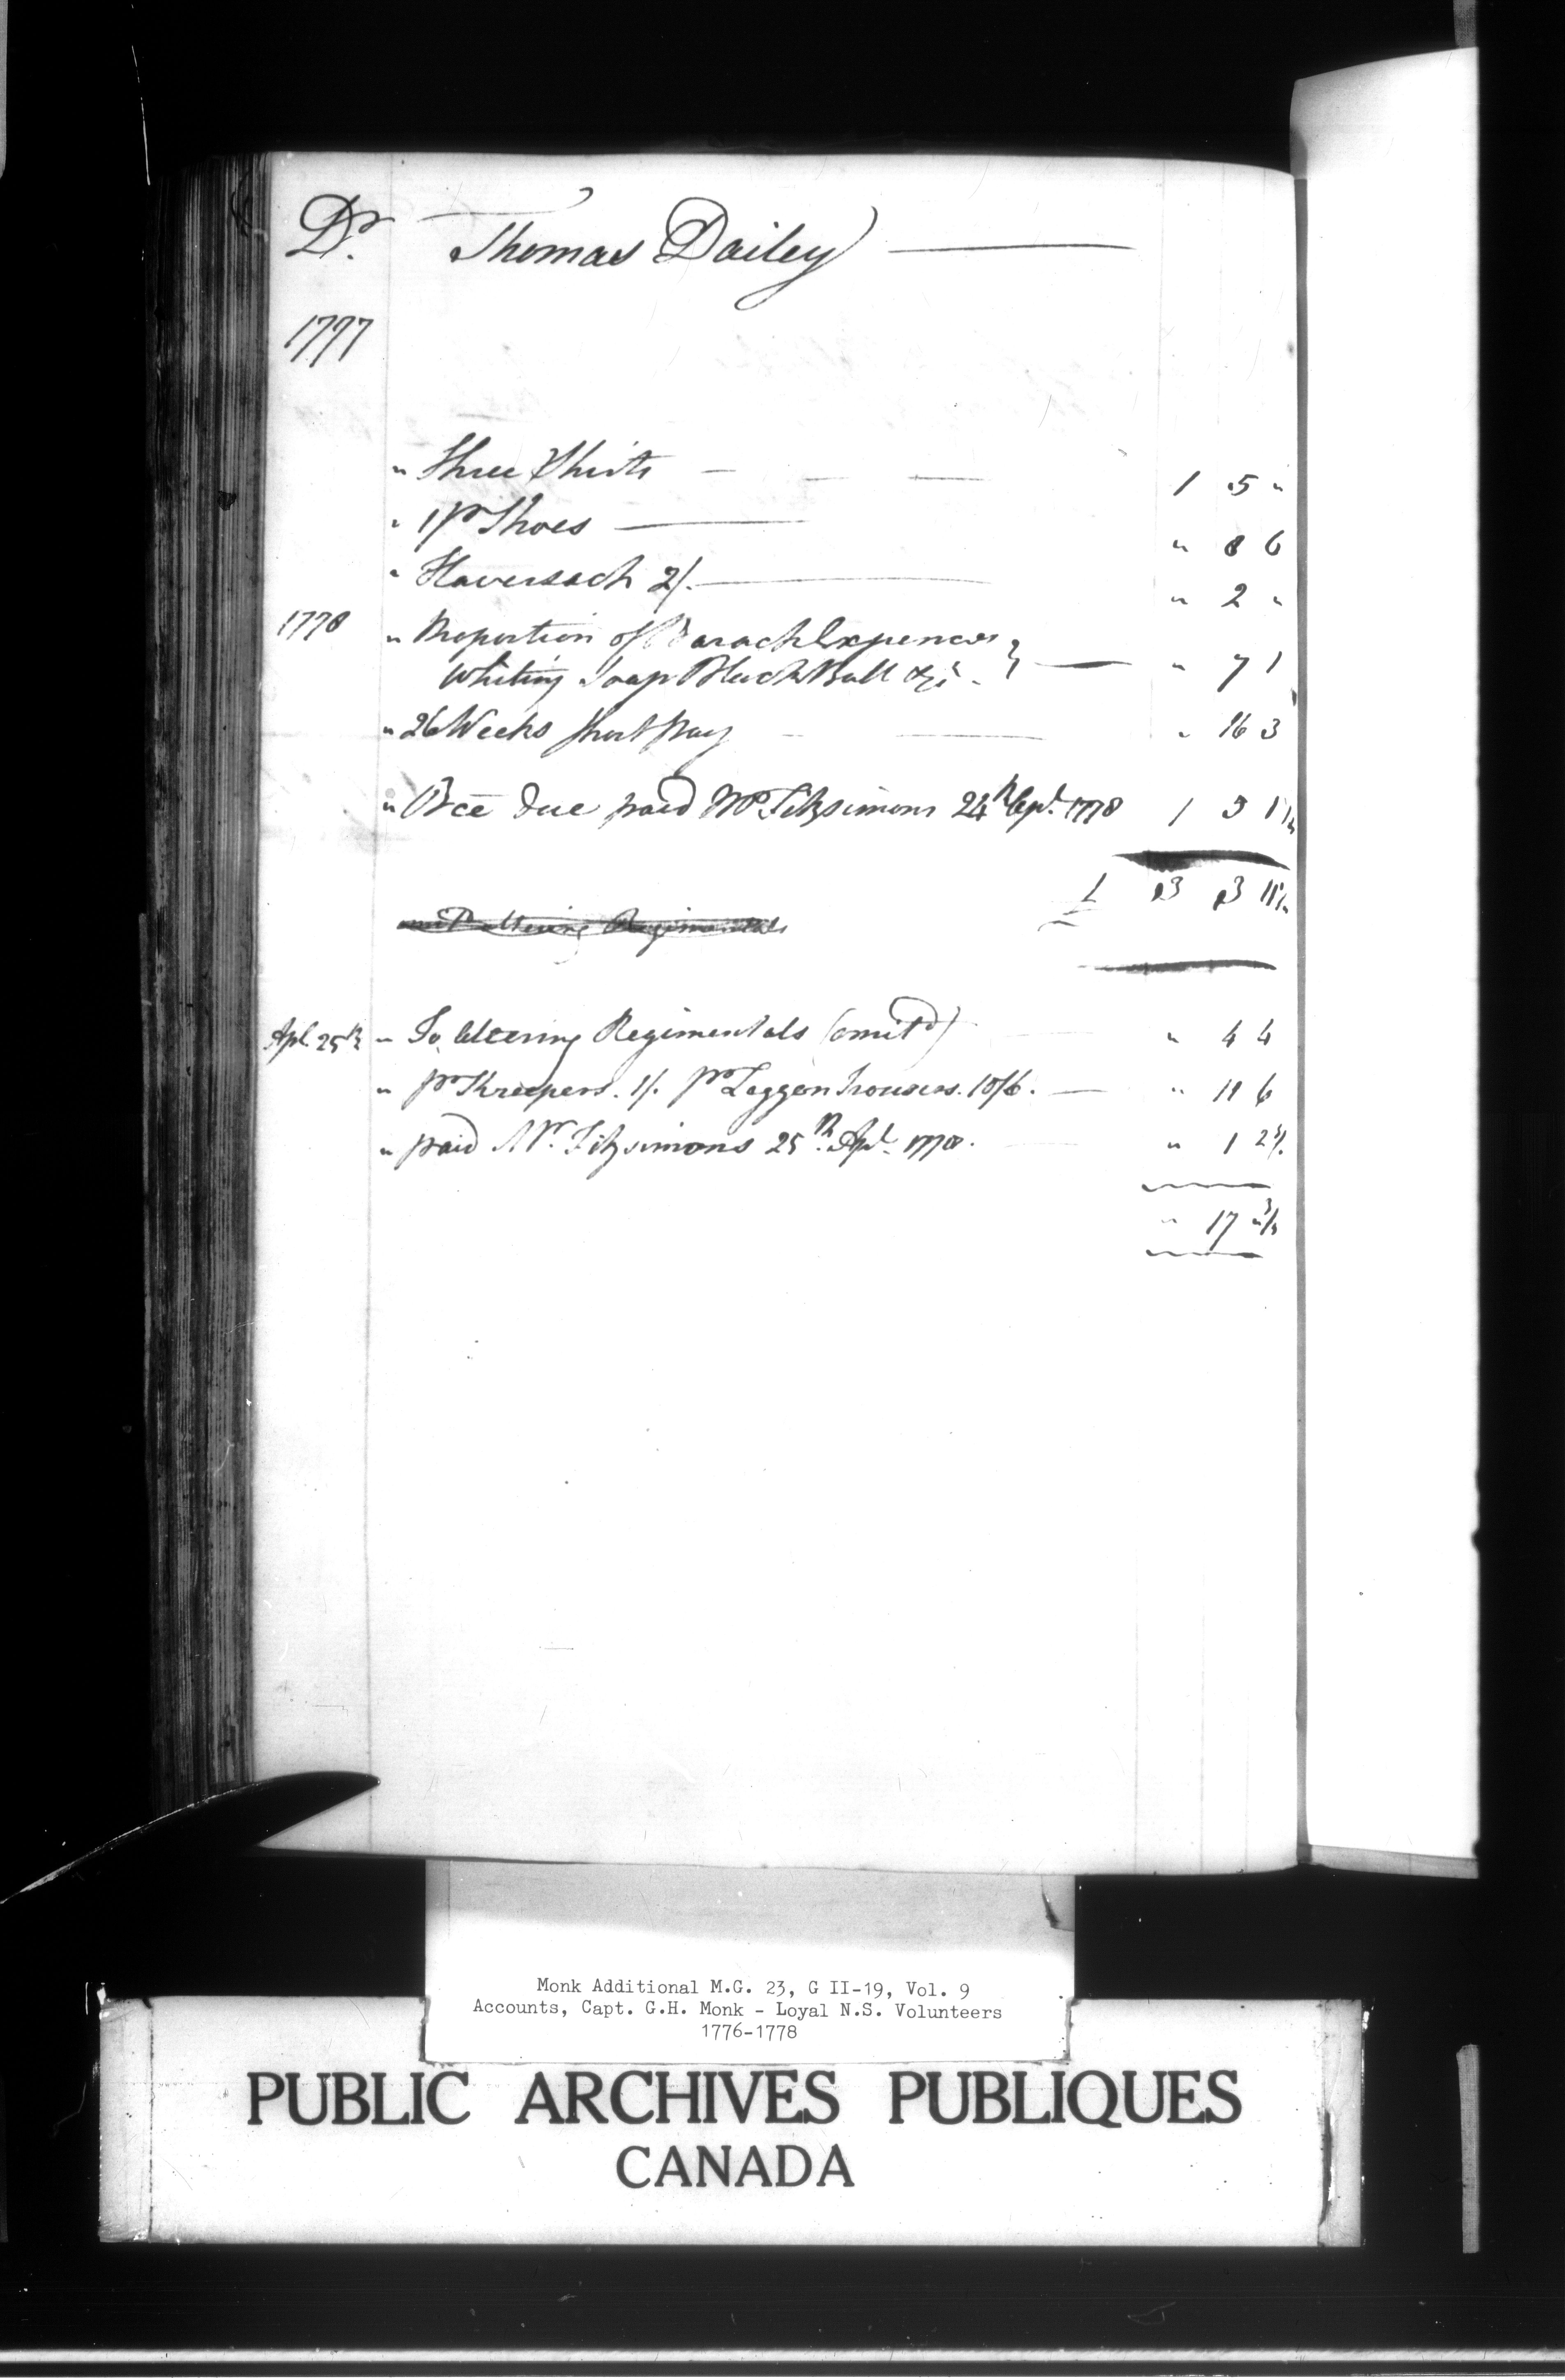 Dr. Thomas Dailey
1777
" Three Shirts 1 5 "
" 1 pr Shoes " 8 6
" Haversack 2/. " 2 "
1778 " Proportion of Barack Expences
Whiting Soap Black Ball &c. " 7 1
" 26 Weeks short pay " 16 3
" Bce due paid Mr Fitzsimons 24th Sept. 1778 1 5 1½
£ 3 3 11½
Altering Regimentals
Apl 25th " To Altering Regimentals (omitd) " 4 4
" pr Kreepers. 1/. pr Leggen trousers. 10/6. " 11 6
" paid Mr. Fitzsimons 25th. Apl. 1778. " 1 2¾
" 17 " ¾
Monk Additional M.G. 23, G II-19, Vol. 9
Accounts, Capt. G.H. Monk - Loyal N.S. Volunteers
1776-1778
PUBLIC ARCHIVES PUBLIQUES
CANADA